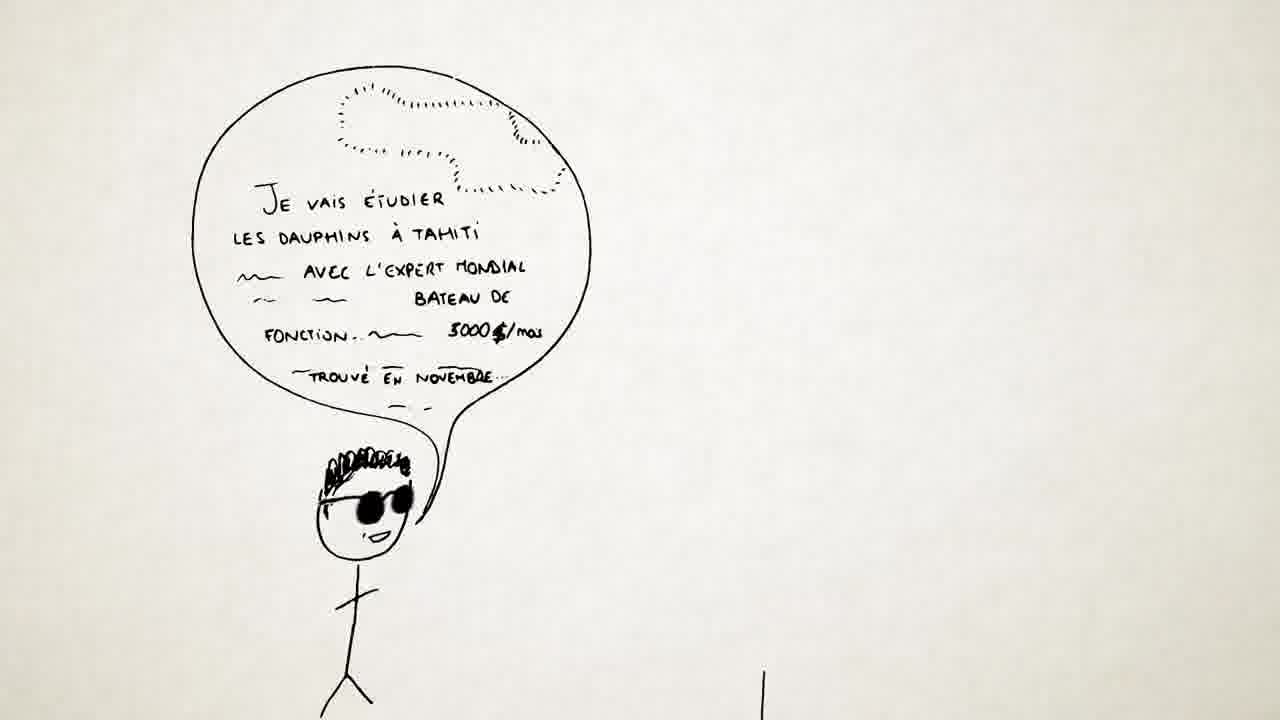 Je vais étudier
les dauphins à Tahiti
avec l'expert mondial
bateau de
fonction.. 5000 $/mois
trouvé en novembre...